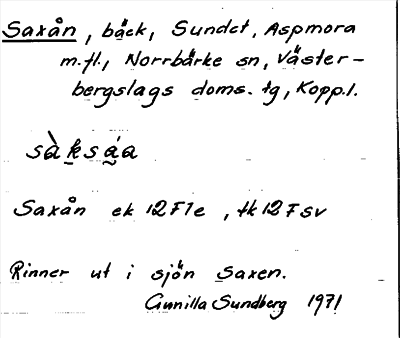 Saxån, bäck, Sundet, Aspmora
m.fl., Norrbärke sn, Väster-
bergslags doms. tg, Kopp.l.
sàksáa
Saxån ek 12F1e, tk 12F sv
Rinner ut i sjön Saxen.
Gunilla Sundberg 1971